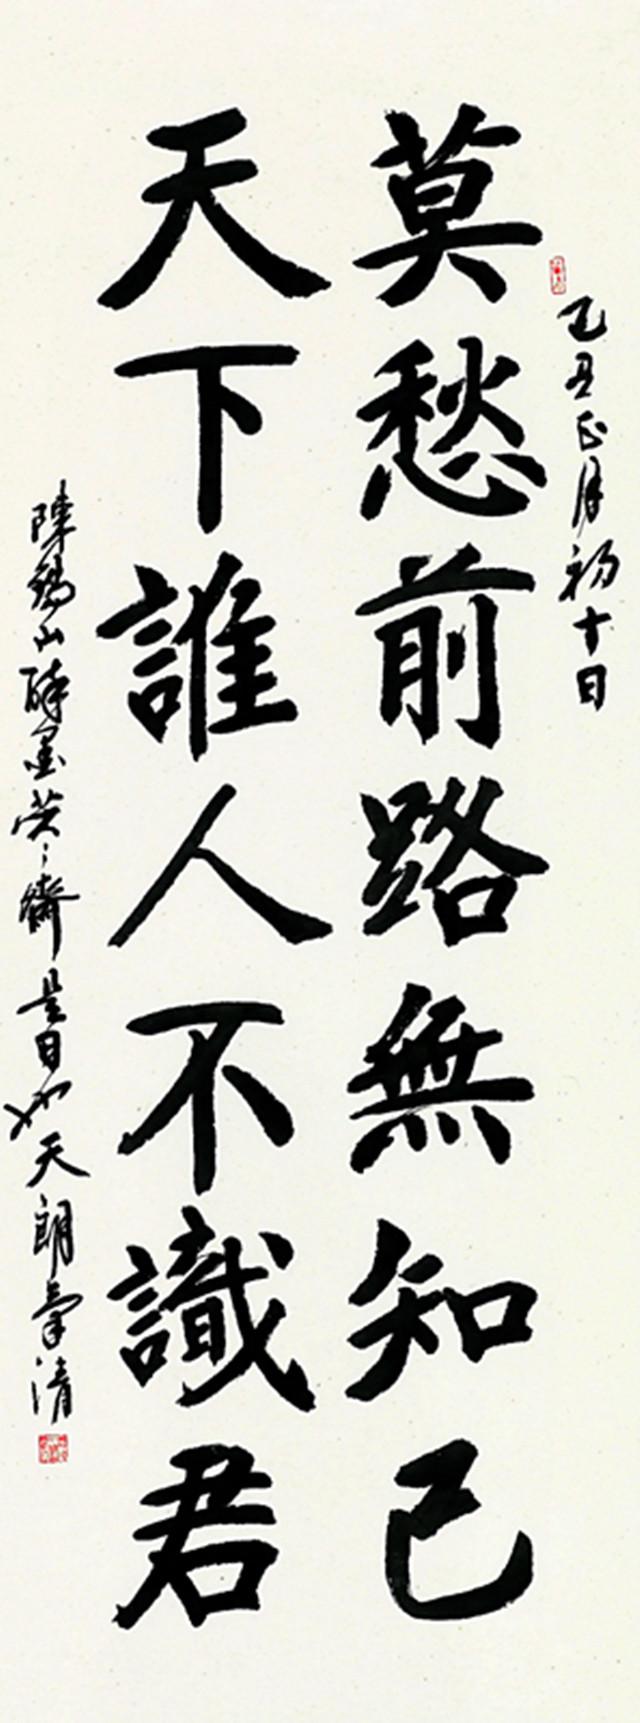 乙丑正月初十日
莫愁前路無知己
天下誰人不識君
陳錫山醉墨齋是日也天朗氣清